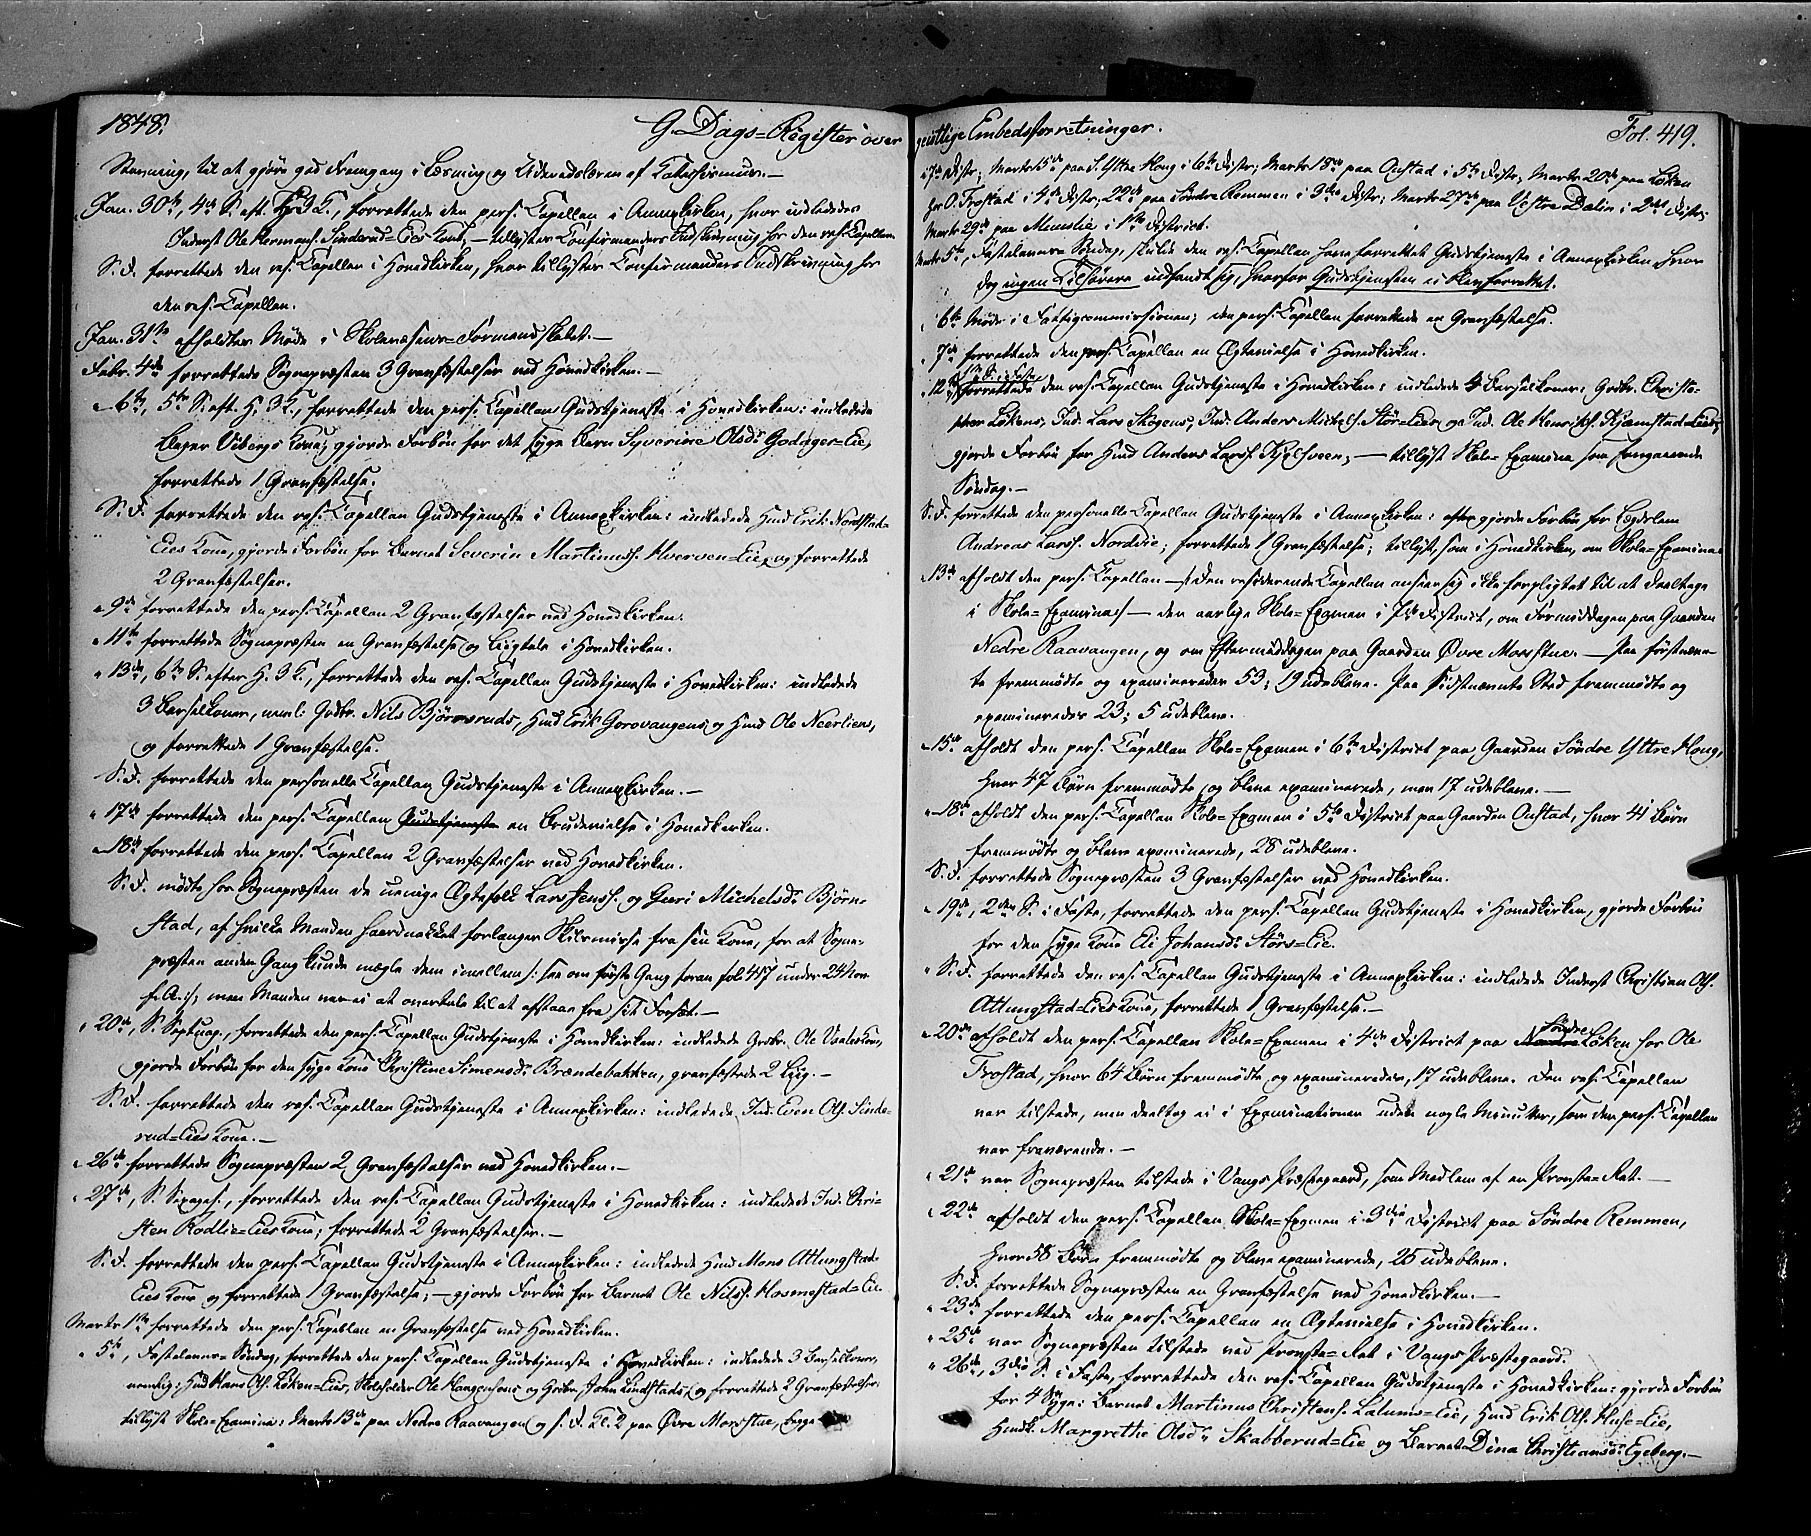 1848. G. Dags=Register over
Stevning, til at gjøre god Fremgang i Læsning og Udenadslæren af Katechismus.—
Jan. 30te, 4de S. eft. H 3 K., forrettede den pers. Capellan i Annexkirken, hvor indlededes
Inderst Ole Hermans. Sinderud=Eies Kone, — tillystes Confirmanders Indskrivning hos den res. Capellan.
S. D. forrettede den res. Capellan i Hovedkirken, hvor tillystes Confirmanders Indskrivning hos
den res. Capellan.
Jan. 31te afholdtes Møde i Skolevæsens=Formandskabet.—
Febr. 4de forrettede Sognepræsten 3 Gravfæstelser ved Hovedkirken.—
" 6te, 5te S. eft. H. 3 K., forrettede den pers. Capellan Gudstjeneste i Hovedkirken: indledede
Vibergs Kone; gjorde Forbøn for det syge Barn Syverine Olsdr Godager=Eie,
forrettede 1 Gravfæstelse.
S. D. forrettede den res. Capellan Gudstjeneste i Annexkirken: indledede Husmd Erik Nordstad=
Eies Kone, gjorde Forbøn for Barnet Severin Martinuss. Hverven=Eie, og forrettede
2 Gravfæstelser.
" 9de forrettede den pers. Capellan 2 Gravfæstelser ved Hovedkirken.
" 11te forrettede Sognepræsten en Gravfæstelse og Liigtale i Hovedkirken.
" 13de, 6te S. efter H. 3 K., forrettede den res. Capellan Gudstjeneste i Hovedkirken: indledede
3 Barselkoner, neml: Gdbr. Nils Bjørnsruds, Husmd Erik Gorovangens og Husmd Ole Neerliens,
og forrettede 1 Gravfæstelse.
S. D. forrettede den personelle Capellan Gudstjeneste i Annexkirken.—
" 17de forrettede den pers. Capellan Gudstjeneste en Brudevielse i Hovedkirken.
" 18de forrettede den pers. Capellan 2 Gravfæstelser ved Hovedkirken.
S. D. mødte hos Sognepræsten de uenige Ægtefolk Lars Jenss. og Guri Michelsdr Bjørn=
stad, af hvilke Manden haardnakket forlanger Skilsmisse fra sin Kone, for at Sogne=
præsten anden Gang kunde mægle dem imellem /: see om første Gang foran fol. 417 under 24
f. A.:/, men Manden var ei at overtale til at afstaae fra sit Forsæt.—
" 20de, S. Septuag., forrettede den pers. Capellan Gudstjeneste i Hovedkirken: indledede Gdbr. Ole Kone,
gjorde Forbøn for den syge Kone Christine Simensdr Brændebakken, gravfæstede 2 Liig.—
S. D. forrettede den res. Capellan Gudstjeneste i Annexkirken: indledede Ind: Even Ols. Sinde=
rud=Eies Kone.—
" 26de forrettede Sognepræsten 2 Gravfæstelser ved Hovedkirken.—
" 27de, S. Sexages., forrettede den res. Capellan Gudstjeneste i Hovedkirken: indledede Ind. Chri=
sten Rodlie=Eies Kone; forrettede 2 Gravfæstelser.—
S. D. forrettede den pers. Capellan Gudstjeneste i Annexkirken: indledede Husmd Mons Attungstad=
Eies Kone og forrettede 1 Gravfæstelse; — gjorde Forbøn for Barnet Ole Nilss. Hosmestad=Eie.
Marts 1ste forrettede den pers. Capellan en Gravfæstelse ved Hovedkirken.
" 5te, Fastelavns=Søndag, forrettede den pers. Capellan Gudstjeneste i Hovedkirken: indledede 3 Barselkoner,
nemlig: Husmd Hans Ols. Løken=Eies, Skoleholder Ole Haagensens og Gdbr. John Lundstads, og forrettede 2 Gravfæstelser;
tillyst Skole=Examina: Marts 13de paa Nedre Raavangen og s. D. Kl. 2 paa Øvre Morstue, begge
geistlige Embedsforretninger. Fol. 419.
i 7de Distr., Marts 15de paa S. Yttre Hong i 6te Distr; Marts 18de paa Onstad i 5te Distr; Marts 20de paa Løken
hos O. Frostad i 4de Distr; 22de paa Søndre Remmen i 3die Distr; Marts 27de paa Vestre Dælin i 2det Distr;
Marts 29de paa i 1ste District.
Marts 5te, Fastelavns Søndag, skulde den res. Capellan have forrettet Gudstjeneste i Annexkirken hvor
dog ingen Tilhørere indfandt sig, hvorfor Gudstjenesten ei blev forrettet.
" 6te Møde i Fattigcommissionen; den pers. Capellan forrettede en Gravfæstelse.
" 7de forrettede den pers. Capellan en Ægtevielse i Hovedkirken.
1ste S. i Faste
" 12te forrettede den res. Capellan Gudstjeneste i Hovedkirken: indledede 4 Barselkoner: Gdbr. Christo=
pher Løkens, Ind. Lars Skogens, Ind. Anders Michels. Stør=Eies, og Ind. Ole Henrichs. Kjæmstad=Eies;
gjorde Forbøn for Husmd Anders Larss. Kjelsveen; — tillyst Skole=Examina som foregaaende
Søndag.—
S. D. forrettede den personelle Capellan Gudstjeneste i Annexkirken: gjorde Forbøn for Lægdslem
Andreas Larss. Nordlie; forrettede 1 Gravfæstelse; tillyst, som i Hovedkirken, om Skole=Examina.
" 13de afholdt den pers. Capellan —/: den residerende Capellan anseer sig ikke forpligtet til at deeltage
i Skole=Examina:/— den aarlige Skole=Examen i 7de District, om Formiddagen paa Gaarden
Nedre Raavangen, og om Eftermiddagen paa Gaarden Øvre Morstue.— Paa førstnævn=
te fremmødte og examineredes 53; 19 udebleve. Paa sidstnævnte Sted fremmødte og
examineredes 23; 5 udebleve.
" 15de afholdt den pers. Capellan Skole=Examen i 6te District paa Gaarden Søndre Yttre Hong,
hvor 47 Børn fremmødte og bleve examinerede, men 17 udebleve.—
" 18de afholdt den pers. Capellan Skole=Examen i 5te District paa Gaarden Onstad, hvor 41 Børn
fremmødte og bleve examinerede, 28 udebleve.
S. D. forrettede Sognepræsten 3 Gravfæstelser ved Hovedkirken.
" 19de, 2den S. i Faste, forrettede den pers. Capellan Gudstjeneste i Hovedkirken, gjorde Forbøn
for den syge Kone Eli Johansdr Størs=Eie.
" S. D. forrettede den res. Capellan Gudstjeneste i Annexkirken: indledede Inderst Christian Ols.
Attungstad=Eies Kone, forrettede 1 Gravfæstelse.—
" 20de afholdt den pers. Capellan Skole=Examen i 4de District paa Nordre Søndre Løken hos Ole
Frostad, hvor 64 Børn fremmødte og examineredes, 17 udebleve. Den res. Capellan
var tilstede, men deeltog ei i Examinationen uden nogle Minutter, som den pers. Capellan
var fraværende.—
" 21de var Sognepræsten tilstede i Vangs Præstegaard, som Medlem af en Provste=Ret.—
" 22de afholdt den pers. Capellan Skole=Examen i 3die District paa Søndre Remmen,
hvor 58 Børn fremmødte og bleve examinerede, 25 udebleve.
S. D. forrettede Sognepræsten en Gravfæstelse ved Hovedkirken.—
" 23de forrettede den pers. Capellan en Ægtevielse i Hovedkirken.
" 25de var Sognepræsten tilstede ved Provste=Ret i Vangs Præstegaard.
" 26de, 3die S. i Faste, forrettede den res. Capellan Gudstjeneste i Hovedkirken: gjorde Forbøn
for 4 Syge: Barnet Martinus Christens. Lalums=Eie, Husmd Erik Ols. Huse=Eie,
Husmk. Margrethe Olsdr Skabberud=Eie og Barnet Dina Christiansdr Egeberg.—